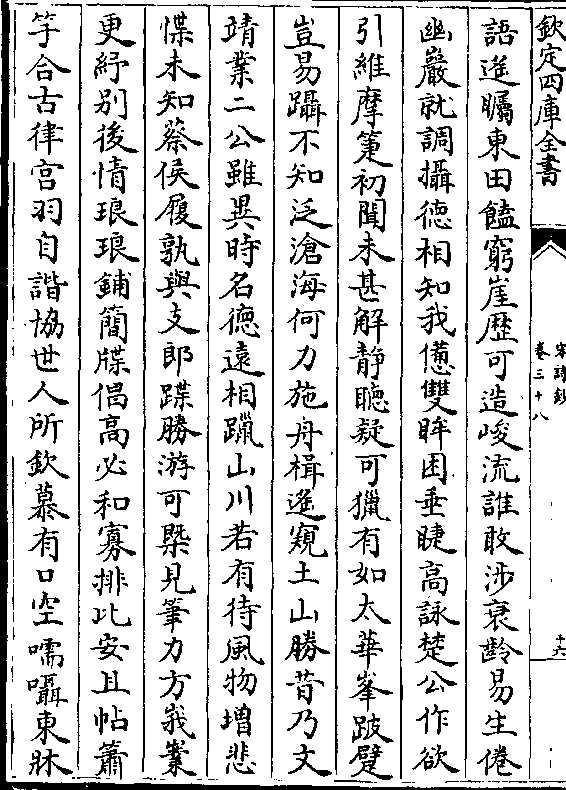 欽定四庫全書
宋詩鈔
卷三十八
十六
語遥矚東田饁窮崖歴可造峻流誰敢涉衰齡易生倦
幽巖就調攝德相知我憊雙眸困垂睫高詠楚公作欲
引維摩箑初聞未甚解静聽疑可獵有如太華峯跛躄
豈易躡不知泛滄海何力施舟楫遥窺土山勝昔乃文
靖業二公雖異時名德逺相躐山川若有待風物增悲
惵未知蔡侯履孰與支郎蹀勝游可槩見筆力方峩嶪
更紓别後情琅琅鋪簡牒倡高必和寡排比安且帖簫
竽合古律宫羽自諧協世人所欽慕有口空嚅囁東牀